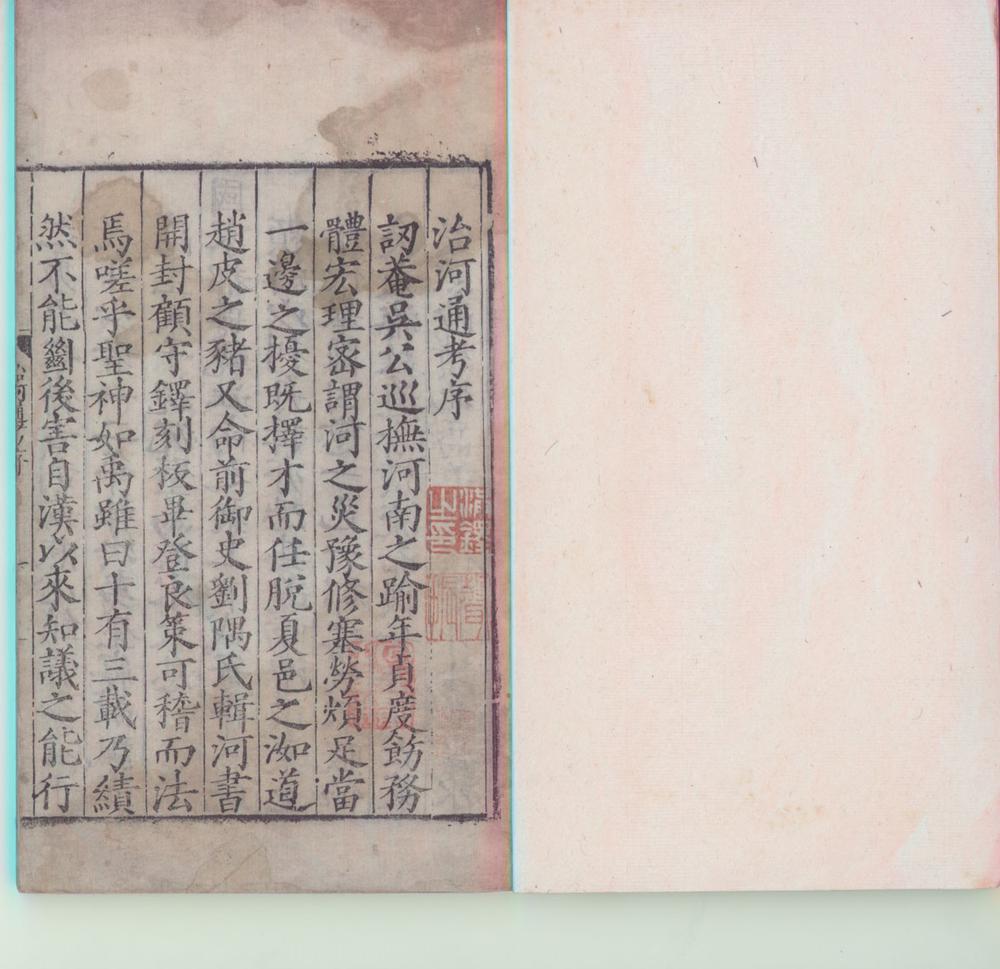 治河通考序
訒菴吳公巡撫河南之踰年貞度飭務
體宏理密謂河之災豫修塞勞煩足當
一邊之擾既擇才而任脫夏邑之洳道
趙皮之豬又命前御史劉隅氏輯河書
開封顧守鐸刻板畢登良策可稽而法
焉嗟乎聖神如禹雖曰十有三載乃績
然不能㔉後害自漢以來知議之能行